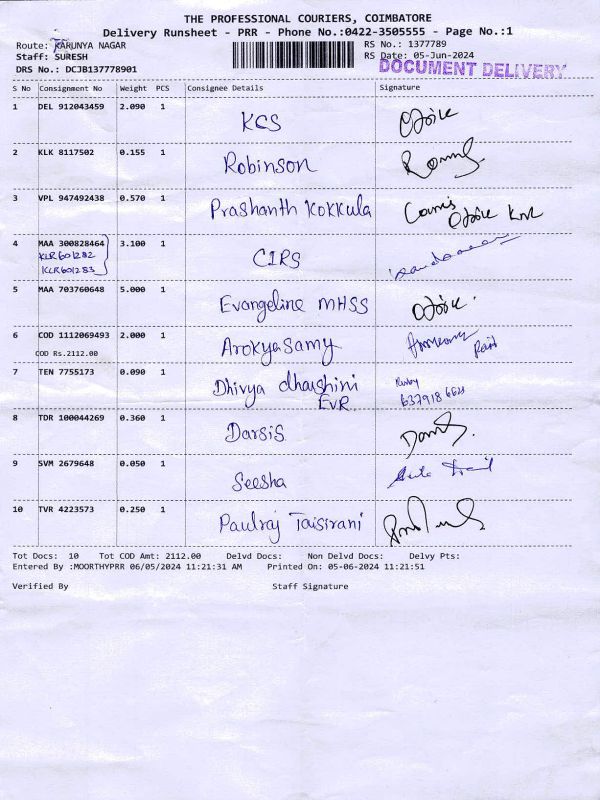 THE PROFESSIONAL COURIERS, COIMBATORE
Delivery Runsheet - PRR - Phone No.:0422-3505555 - Page No.:1
Route: KARUNYA NAGAR RS No.: 1377789
Staff: SURESH RS Date: 05-Jun-2024
DRS No.: DCJB137778901 DOCUMENT DELIVERY
S No Consignment No Weight PCS Consignee Details Signature
1 DEL 912043459 2.090 1 KCS
2 KLK 8117502 0.155 1 Robinson
3 VPL 947492438 0.570 1 Prashanth Kokkula
4 MAA 300828464 3.100 1 CIRS
KLR601282
KLR601283
5 MAA 703760648 5.000 1 Evangeline MHSS
6 COD 1112069493 2.000 1 Arokyasamy
COD Rs.2112.00
7 TEN 7755173 0.090 1 Dhivya dharshini
EVR
8 TDR 100044269 0.360 1 Darsis
9 SVM 2679648 0.050 1 Seesha
10 TVR 4223573 0.250 1 Paulraj Taisirani
Tot Docs: 10 Tot COD Amt: 2112.00 Delvd Docs: Non Delvd Docs: Delvy Pts:
Entered By :MOORTHYPRR 06/05/2024 11:21:31 AM Printed On: 05-06-2024 11:21:51
Verified By Staff Signature